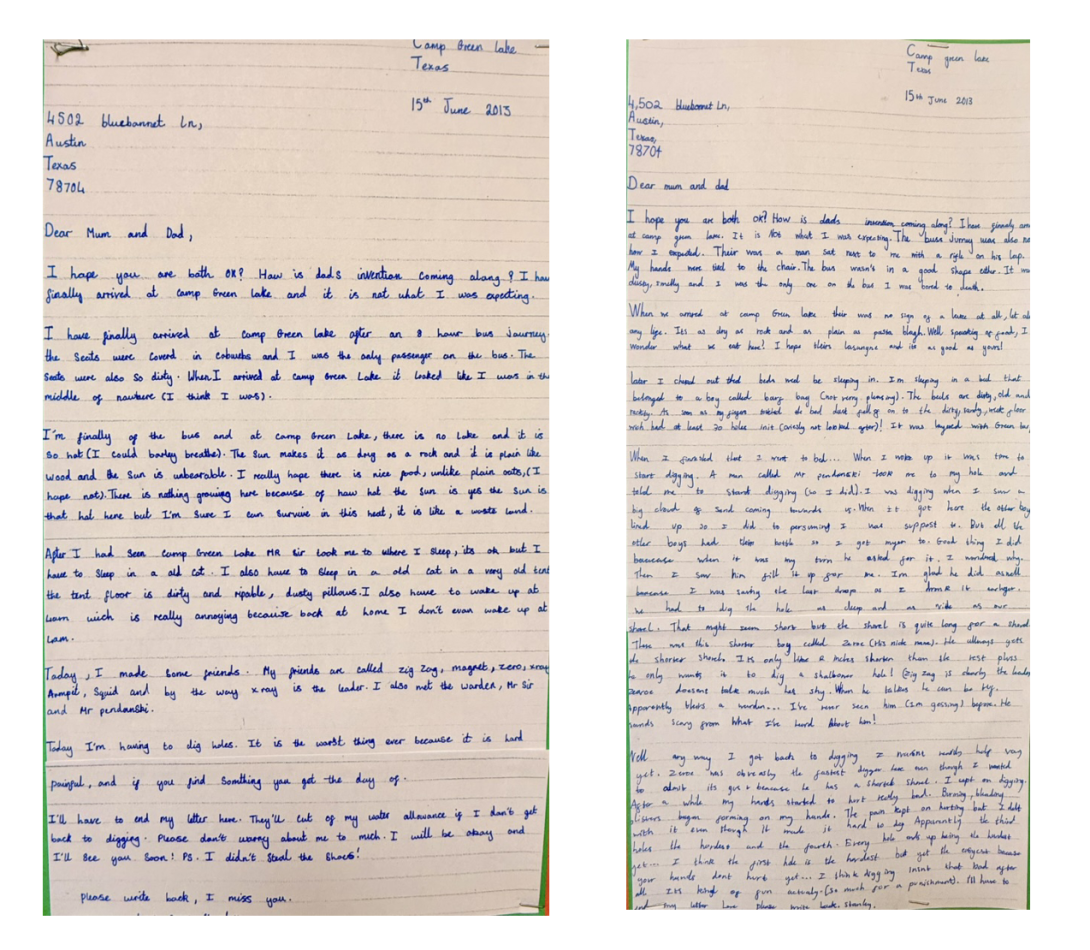 Camp Green Lake
Texas
15th June 2013
4502 bluebannet Ln,
Austin
Texas
78704
Dear Mum and Dad,
I hope you are both OK? How is dads invention coming along? I hav
finally arrived at camp Green Lake and it is not what I was expecting.
I have finally arrived at camp Green lake after an 8 hour bus journey.
the seats were coverd in cobwebs and I was the only passenger on the bus. The
seats were also so dirty. When I arrived at camp Green Lake it looked like I was in the
middle of nowhere (I think I was).
I'm finally of the bus and at camp Green Lake, there is no Lake and it is
so hot (I could barley breathe). The sun makes it as dry as a rock and it is plain like
wood and the sun is unbearable. I really hope there is nice food, unlike plain oats, (I
hope not). There is nothing growing here because of how hot the sun is yes the sun is
that hot here but I'm sure I can survive in this heat, it is like a waste land.
After I had seen Camp Green Lake MR Sir took me to where I sleep, its ok but I
have to sleep in a old cot. I also have to sleep in a old cat in a very old tent
the tent floor is dirty and ripable, dusty pillows. I also have to wake up at
4am wich is really annoying because back at home I don't evan wake up at
4am.
Today, I made some friends. My friends are called zig zag, magnet, zero, xray
Armpit, Squid and by the way x ray is the leader. I also met the warden, Mr Sir
and Mr pendanski.
Today I'm having to dig holes. It is the worst thing ever because it is hard
painful, and if you find somthing you get the day of.
I'll have to end my letter here. They'll cut of my water allowance if I don't get
back to digging. Please don't worry about me to much. I will be okay and
I'll see you soon! PS. I didn't steal the shoes!
please write back, I miss you.
Camp green lake
Texas
15th June 2013
4,502 bluebonnet Ln,
Austin,
Texas,
78704
Dear mum and dad
I hope you are both OK? How is dads invention coming along? I have finnely
at camp green lake. It is Not what I was expecting. The buss jurney was also no
how I expected. Their was a man sat next to me with a rifle on his lap.
My hands were tied to the chair. The bus wasn't in a good shape ether. It
dusty, and I was the only one on the bus I was bored to death.
When we arrived at camp Green lake their was no sign of a lake at all, let al
any life. Its as dry as rock and as plain as pasta blagh. Well speaking of food, I
wonder what we eat here! I hope theirs lasangne and its as good as yours!
later I out beds wed be sleeping in. Im sleeping in a bed that
belonged to a boy called barf bag (not very pleasing). The beds are dirty, old and
As soon as my do bed dust fell of on to the dirty, sandy, weak floor
wich had at least 20 holes init (clearly not looked after)! It was layered with Green
When I finished that I went to bed... When I woke up it was time to
start digging. A man called Mr pendanski took me to my hole and
told me to start digging (so I did). I was digging when I saw a
big cloud of sand coming towards us. When it got here the other boy
lined up so I did to I was suppost to. But all the
other boys had so I got myan to. Good thing I did
beacause when it was my turn he asked for it. I wondred why.
Then I saw him fill it up for me. Im glad he did aswell
beacause I was saving the last drops as I drank it earlyer.
he had to dig the hole as deep and as wide as our
shovel. That might seem short but the shovel is quite long for a shovel
There was this shorter boy called Zeroe (His nick name). He allways gets
do shorter shovel. Its only like 2 inches shorter than the rest pluss
he only wants it to dig a shallower hole! (Zig Zag is clearly the leader
zeroe doesnt talk much hes shy. When he talks he can be
apparently theirs a warden... I've never seen him (Im gessing) before. He
sounds scary from What Ive heard About him!
Well any way I got back to digging
yet. Zeroe was obviously the fastest digger here even though I wanted
to admit its just beacause he has a shorter shovel. I kept on digging.
After a while my hands started to hurt really bad. Burning, bleeding
blisters began forming on my hands. The pain kept on hurting but I delt
with it even though it made it hard to dig Apparently the third
holes the hardest and the fourth. Every hole ends up being the hardest
yet... I think the first hole is the hardest but yet the easyest beacuse
your hands dont hurt yet... I think digging isnt that bad after
all Its kind of fun actualy. (so much for a punishment). I'll have to
end my letter here please write back. Stanley.